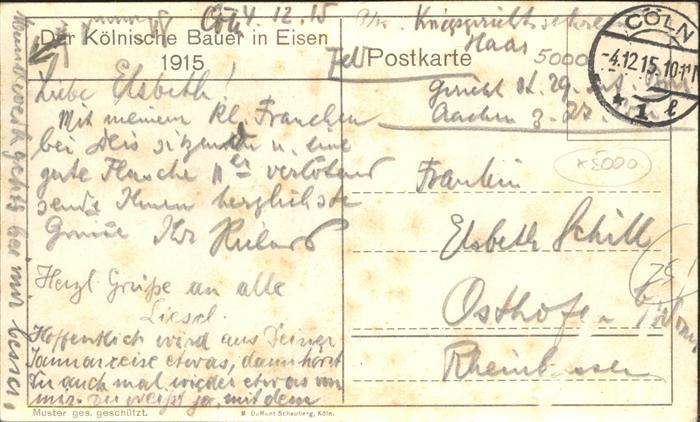 Cöln 4.12.15
Der Kölnische Bauer in Eisen
1915
Liebe Elsbeth!
Mit meinem kl. Frauchen
bei
sitzend u. eine
gute Flasche 11er verlötend
sende Ihnen herzlichste
Grüsse Ihr
Herzl. Grüße an alle
Liesel.
Hoffentlich wird aus Deiner
Januarreise etwas, dann hörst
Du auch mal wieder etwas von
mir. Du weißt ja, mit dem
Mundwerk geht's bei mir besser.
Muster ges. geschützt.
M. DuMont Schauberg, Köln.
Kriegsgerichtssekretär
Haas
5000
Feldpostkarte
Gericht
29.
Aachen
CÖLN
-4.12.15.10-11
* 1 l
x5000
Fräulein
Elsbeth Schill
Osthofen
Rheinhessen
75